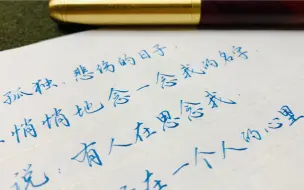 孤独、悲伤的日子，
悄悄地念一念我的名字
说：有人在思念我
在一个人的心里